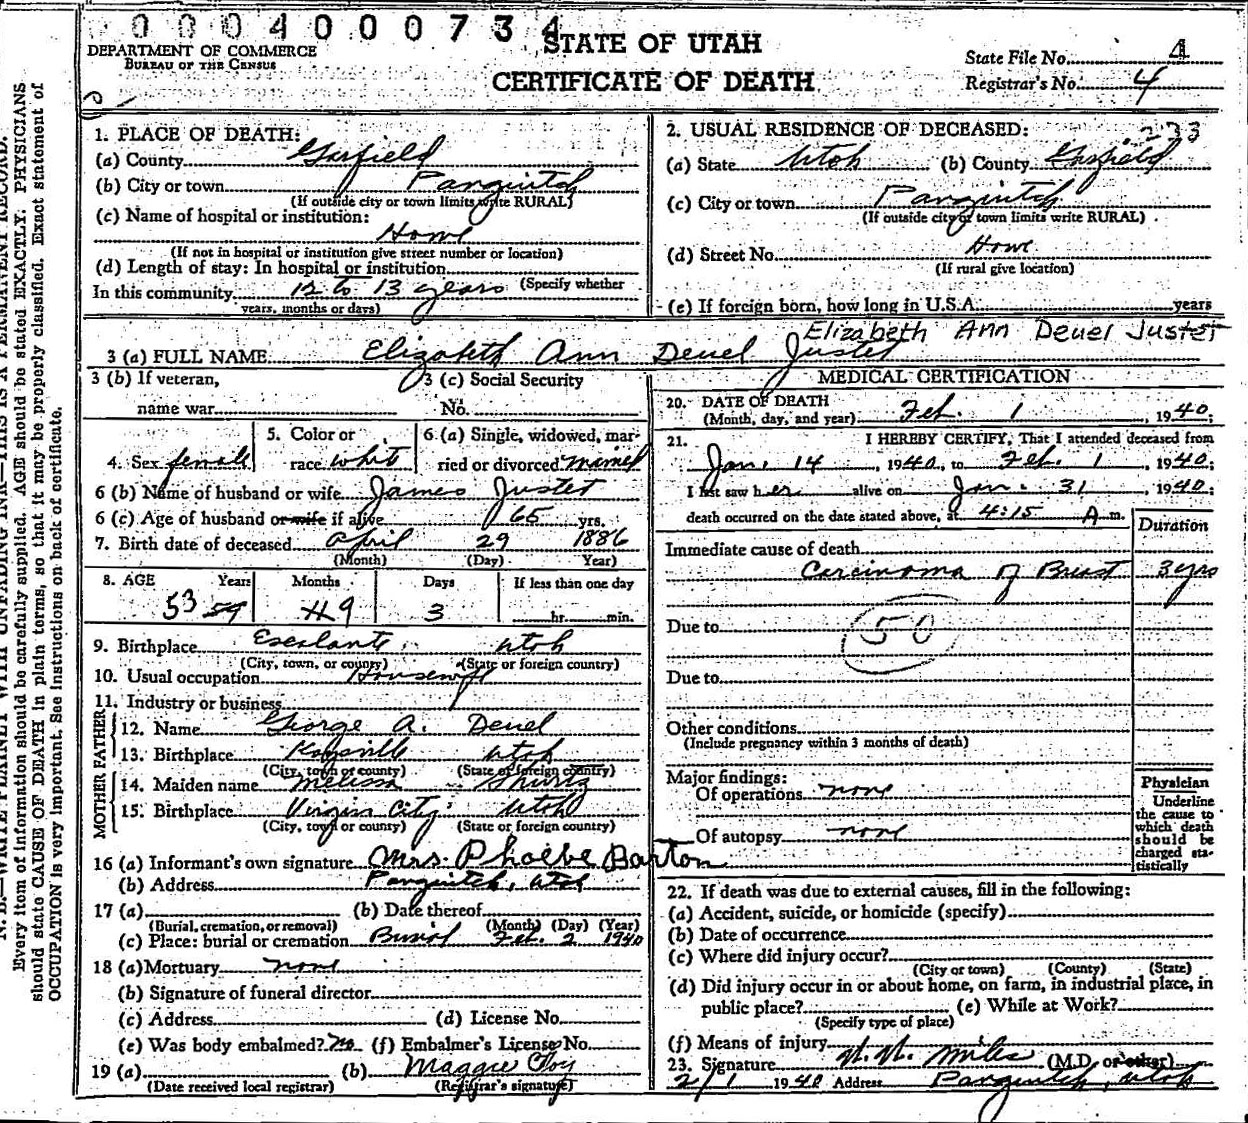 0004000734
STATE OF UTAH
CERTIFICATE OF DEATH
DEPARTMENT OF COMMERCE
BUREAU OF THE CENSUS
State File No. 4
Registrar's No. 4
1. PLACE OF DEATH:
(a) County Garfield
(b) City or town Panguitch
(If outside city or town limits write RURAL)
(c) Name of hospital or institution:
Home
(If not in hospital or institution give street number or location)
(d) Length of stay: In hospital or institution
In this community 12 to 13 years (Specify whether
years, months or days)
2. USUAL RESIDENCE OF DECEASED: 233
(a) State Utah (b) County Garfield
(c) City or town Panguitch
(If outside city or town limits write RURAL)
(d) Street No. Home
(If rural give location)
(e) If foreign born, how long in U.S.A. years
Elizabeth Ann Deuel Juster
3 (a) FULL NAME Elizabeth Ann Deuel Juster
3 (b) If veteran,
name war
3 (c) Social Security
No.
4. Sex female
5. Color or
race white
6. (a) Single, widowed, mar-
ried or divorced married
6 (b) Name of husband or wife James Juster
6 (c) Age of husband or wife if alive 65 yrs.
7. Birth date of deceased April 29 1886
(Month) (Day) Year)
8. AGE Years Months Days If less than one day
53 54 4 9 3 hr. min.
9. Birthplace Escalante Utah
(City, town, or county) (State or foreign country)
10. Usual occupation Housewife
11. Industry or business
FATHER
12. Name George A. Deuel
13. Birthplace Kaysville Utah
(City, town or county) (State or foreign country)
MOTHER
14. Maiden name Melissa Shurtz
15. Birthplace Virgin City Utah
(City, town or county) (State or foreign country)
16 (a) Informant's own signature Mrs. Phoebe Barton
(b) Address Panguitch, Utah
17 (a) (b) Date thereof
(Burial, cremation, or removal) (Month) (Day) (Year)
(c) Place: burial or cremation Burial Feb. 2 1940
18 (a) Mortuary none
(b) Signature of funeral director
(c) Address (d) License No.
(e) Was body embalmed? no (f) Embalmer's License No.
19 (a) (b) Maggie Foy
(Date received local registrar) (Registrar's signature)
MEDICAL CERTIFICATION
20. DATE OF DEATH
(Month, day, and year) Feb. 1, 1940;
21. I HEREBY CERTIFY, That I attended deceased from
Jan. 14, 1940, to Feb. 1, 1940;
I last saw her alive on Jan. 31, 1940;
death occurred on the date stated above, at 4:15 A m.
Duration
Immediate cause of death
Carcinoma of Breast 3 yrs
Due to 50
Due to
Other conditions
(Include pregnancy within 3 months of death)
Major findings:
Of operations none
Of autopsy none
Physician
Underline
the cause to
which death
should be
charged sta-
tistically
22. If death was due to external causes, fill in the following:
(a) Accident, suicide, or homicide (specify)
(b) Date of occurrence
(c) Where did injury occur?
(City or town) (County) (State)
(d) Did injury occur in or about home, on farm, in industrial place, in
public place? (e) While at Work?
(Specify type of place)
(f) Means of injury
23. Signature Miles (M.D. or other)
2/1 1940 Address Panguitch, Utah
N. B.—WRITE PLAINLY WITH UNFADING INK—THIS IS A PERMANENT RECORD.
Every item of information should be carefully supplied. AGE should be stated EXACTLY. PHYSICIANS
should state CAUSE OF DEATH in plain terms, so that it may be properly classified. Exact statement of
OCCUPATION is very important. See instructions on back of certificate.